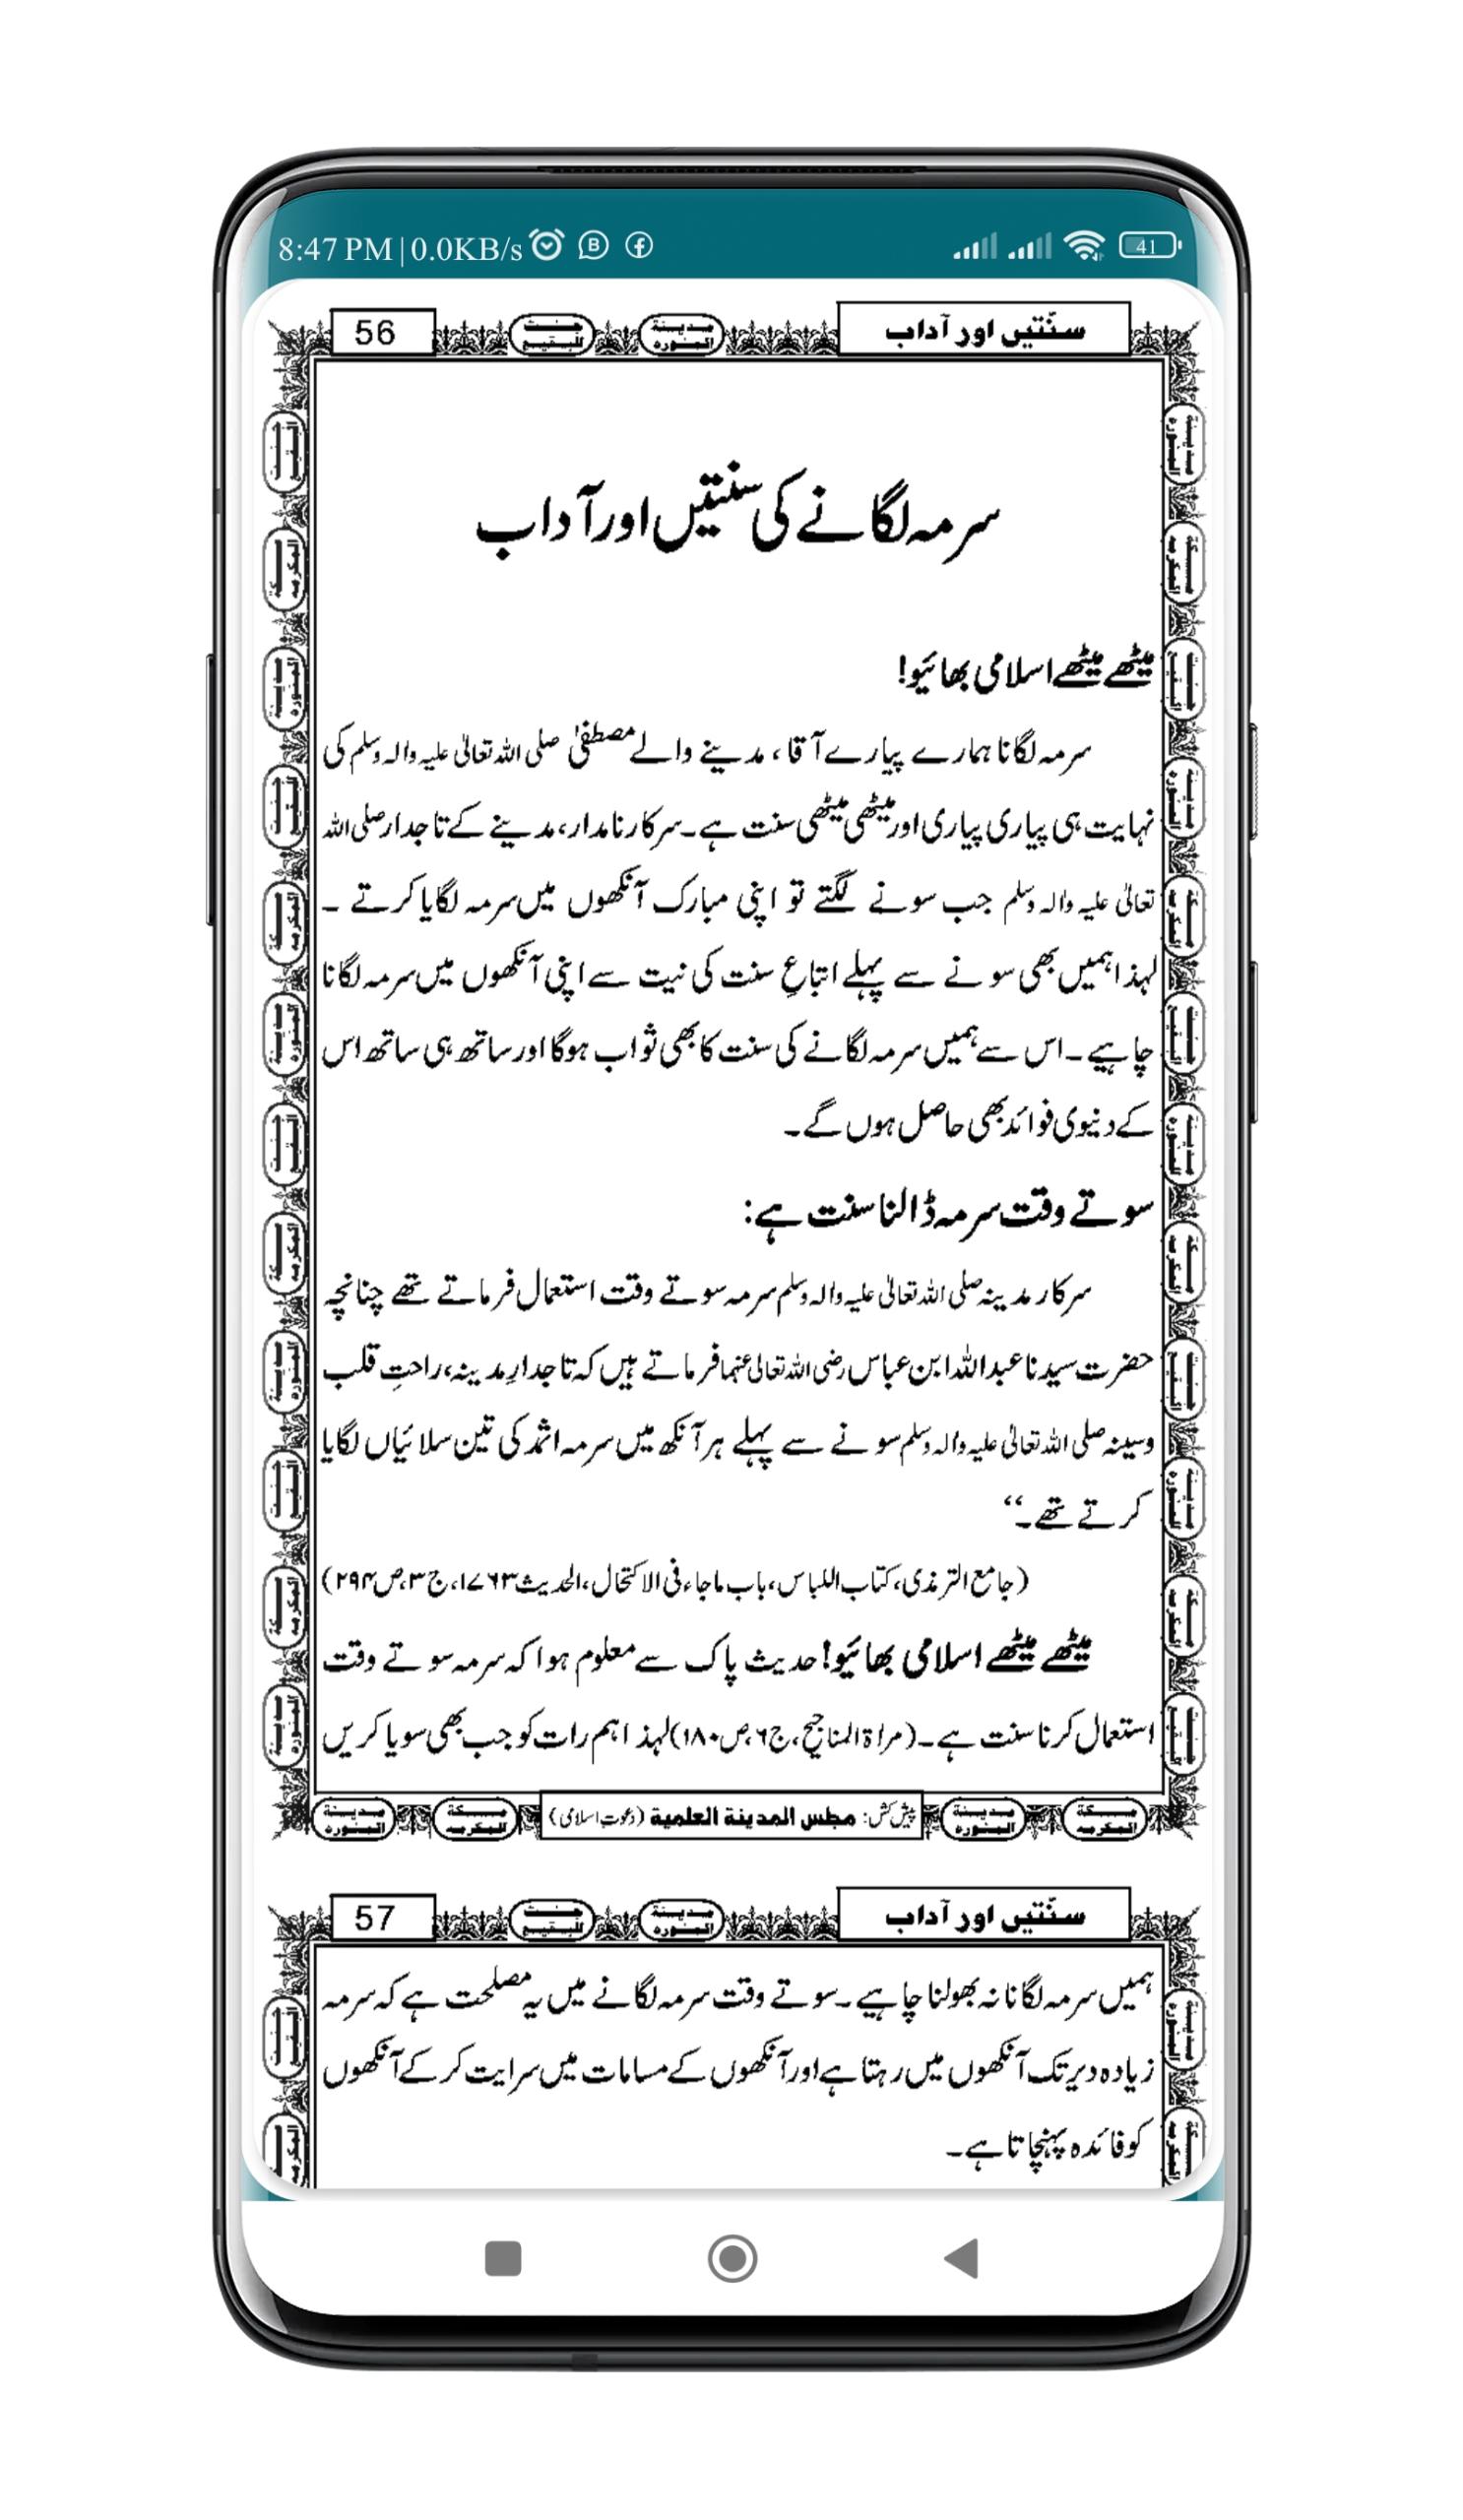 8:47 PM | 0.0KB/s
41
56
سنّتیں اور آداب
سرمہ لگانے کی سنتیں اور آداب
میٹھے میٹھے اسلامی بھائیو!
سرمہ لگانا ہمارے پیارے آقا، مدینے والے مصطفیٰ صلی اللہ تعالیٰ علیہ والہ وسلم کی
نہایت ہی پیاری پیاری اور میٹھی میٹھی سنت ہے۔ سرکار نامدار، مدینے کے تاجدار صلی اللہ
تعالیٰ علیہ والہ وسلم جب سونے لگتے تو اپنی مبارک آنکھوں میں سرمہ لگایا کرتے ۔
لہذا ہمیں بھی سونے سے پہلے اتباعِ سنت کی نیت سے اپنی آنکھوں میں سرمہ لگانا
چاہیے۔ اس سے ہمیں سرمہ لگانے کی سنت کا بھی ثواب ہوگا اور ساتھ ہی ساتھ اس
کے دنیوی فوائد بھی حاصل ہوں گے۔
سوتے وقت سرمہ ڈالنا سنت ہے:
سرکار مدینہ صلی اللہ تعالیٰ علیہ والہ وسلم سرمہ سوتے وقت استعمال فرماتے تھے چنانچہ
حضرت سیدنا عبداللہ ابن عباس رضی اللہ تعالیٰ عنہما فرماتے ہیں کہ تاجدارِ مدینہ، راحتِ قلب
وسینہ صلی اللہ تعالیٰ علیہ والہ وسلم سونے سے پہلے ہر آنکھ میں سرمہ اثمد کی تین سلائیاں لگایا
کرتے تھے۔‘‘
(جامع الترمذی، کتاب اللباس، باب ماجاء فی الاکتحال، الحدیث ۱۷۶۳، ج۳، ص۲۹۴)
میٹھے میٹھے اسلامی بھائیو! حدیث پاک سے معلوم ہوا کہ سرمہ سوتے وقت
استعمال کرنا سنت ہے۔ (مراۃ المناجیح، ج۶، ص۱۸۰) لہذا ہم رات کو جب بھی سویا کریں
پیش کش: مجلس المدینۃ العلمیۃ (دعوت اسلامی)
57
سنّتیں اور آداب
ہمیں سرمہ لگانا نہ بھولنا چاہیے۔ سوتے وقت سرمہ لگانے میں یہ مصلحت ہے کہ سرمہ
زیادہ دیر تک آنکھوں میں رہتا ہے اور آنکھوں کے مسامات میں سرایت کر کے آنکھوں
کو فائدہ پہنچاتا ہے۔